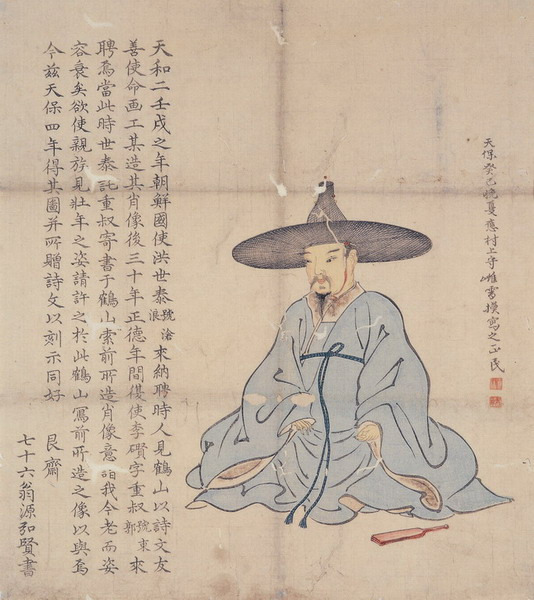 天保癸巳晚夏應村上守雄需摸寫之正民
天和二壬戌之年朝鮮國使洪世泰號滄浪來納聘時人見鶴山以詩文友
善使命画工某造其肖像後三十年正德年間復使李礥字重叔號東郭來
聘焉當此時世泰託重叔寄書于鶴山索前所造肖像意謂我今老而姿
容衰矣欲使親族見壯年之姿請許之於此鶴山寫前所造之像以與焉
今茲天保四年得其圖并所贈詩文以刻示同好
艮齋
七十六翁源弘賢書